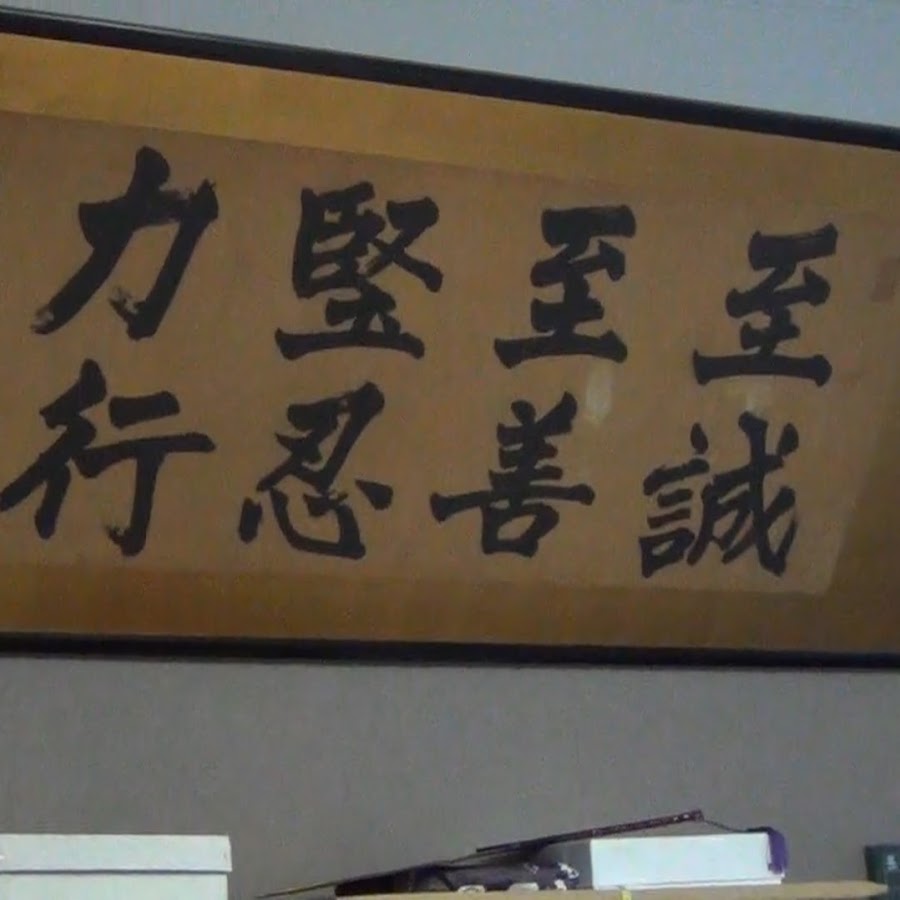 至誠
至善
堅忍
力行